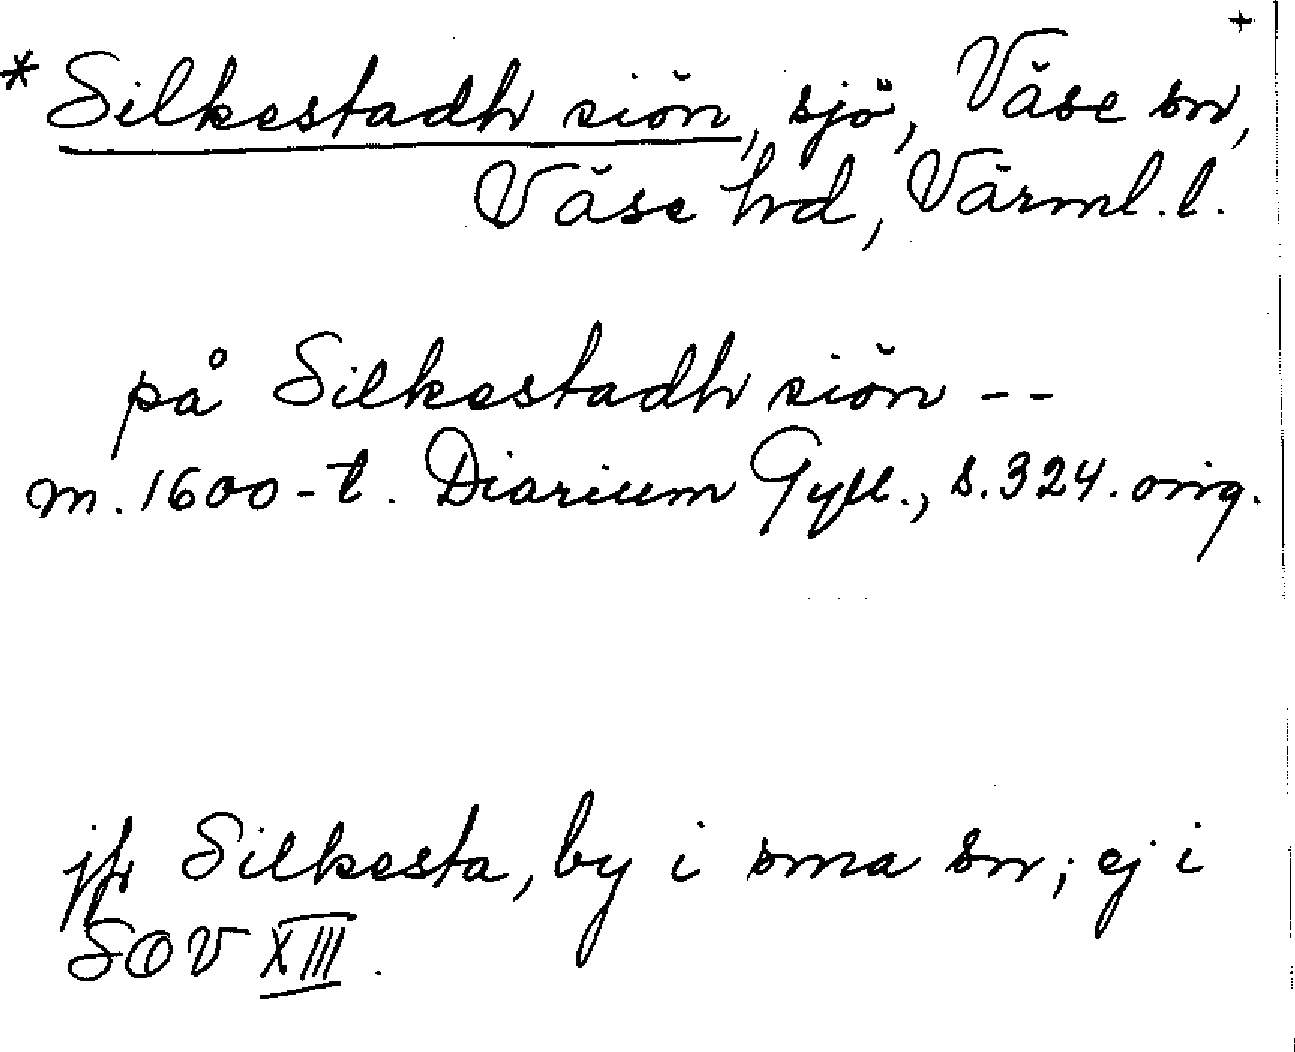 +
* Silkestadh siön, sjö, Väse sn,
Väse hd, Värml. l.
på Silkestadh siön --
m. 1600-t. Diarium Gyll., s. 324. orig.
jfr Silkesta, by i sma sn; ej i
SOV XIII.